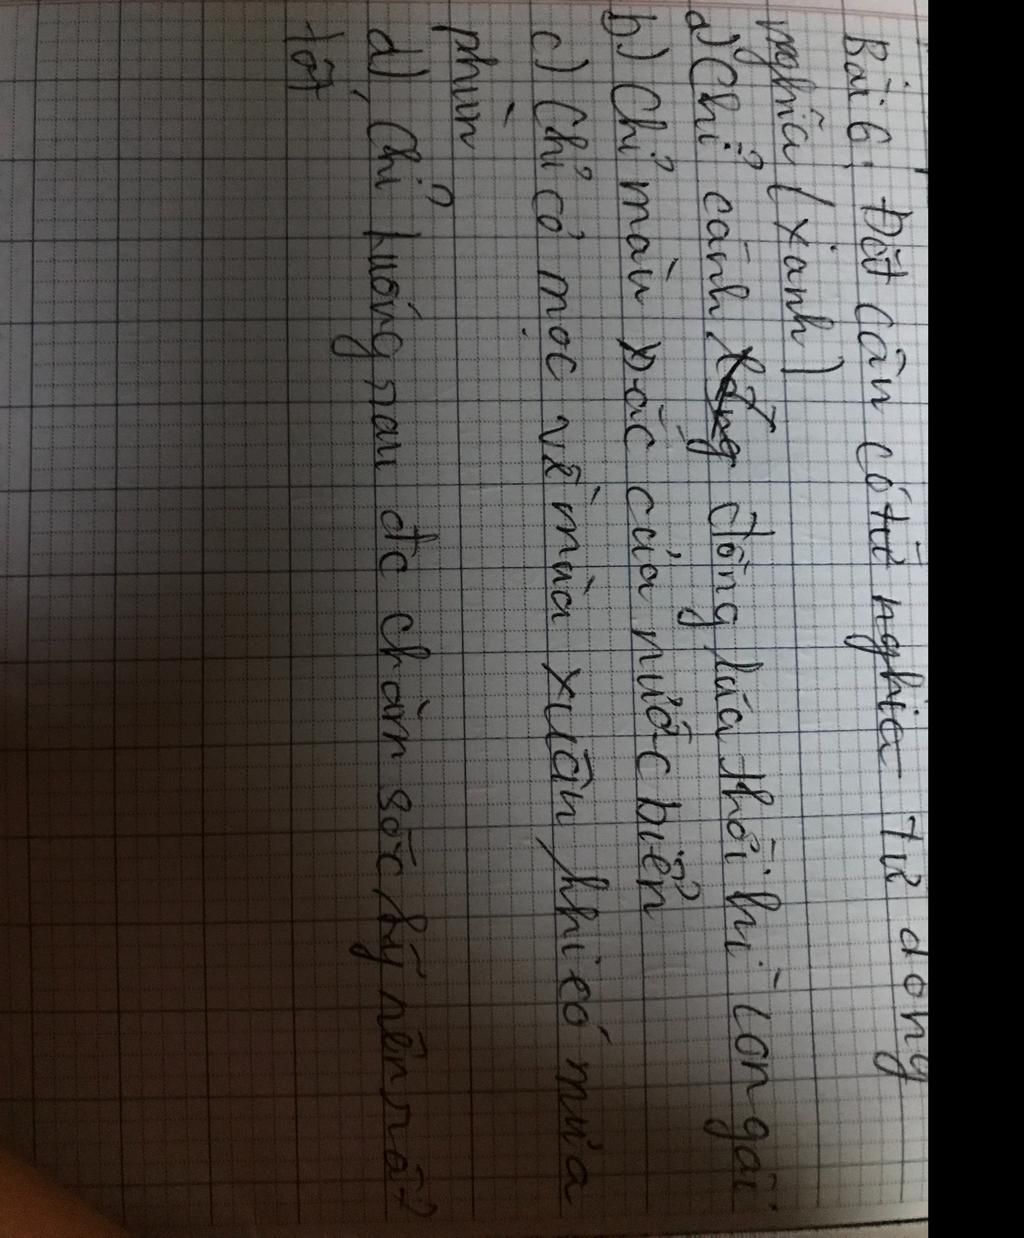 Bài 6: Đặt câu có từ nghĩa từ đồng
nghĩa (xanh)
a) Chỉ cánh đồng lúa thời kì con gái
b) Chỉ màu sắc của nước biển
c) Chỉ cỏ mọc về mùa xuân, khi có mưa
phùn
d), Chỉ luống rau đc chăm sóc kỹ nên rất
tốt